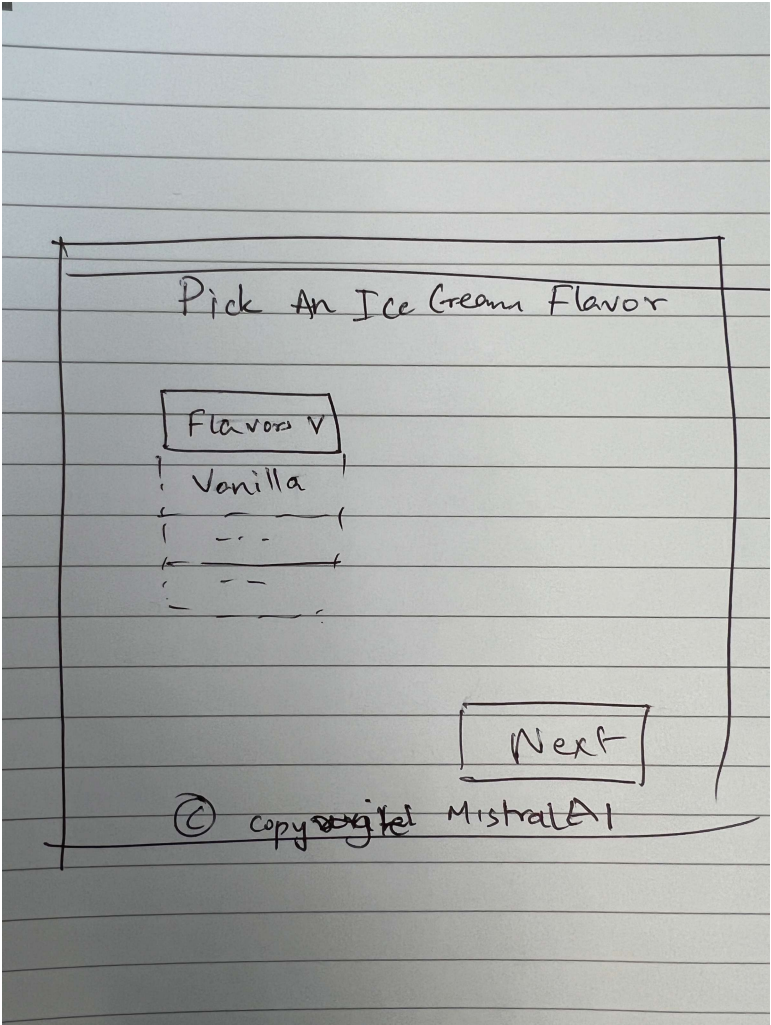 Pick An Ice Cream Flavor
Flavors V
Vanilla
Next
© MistralAI